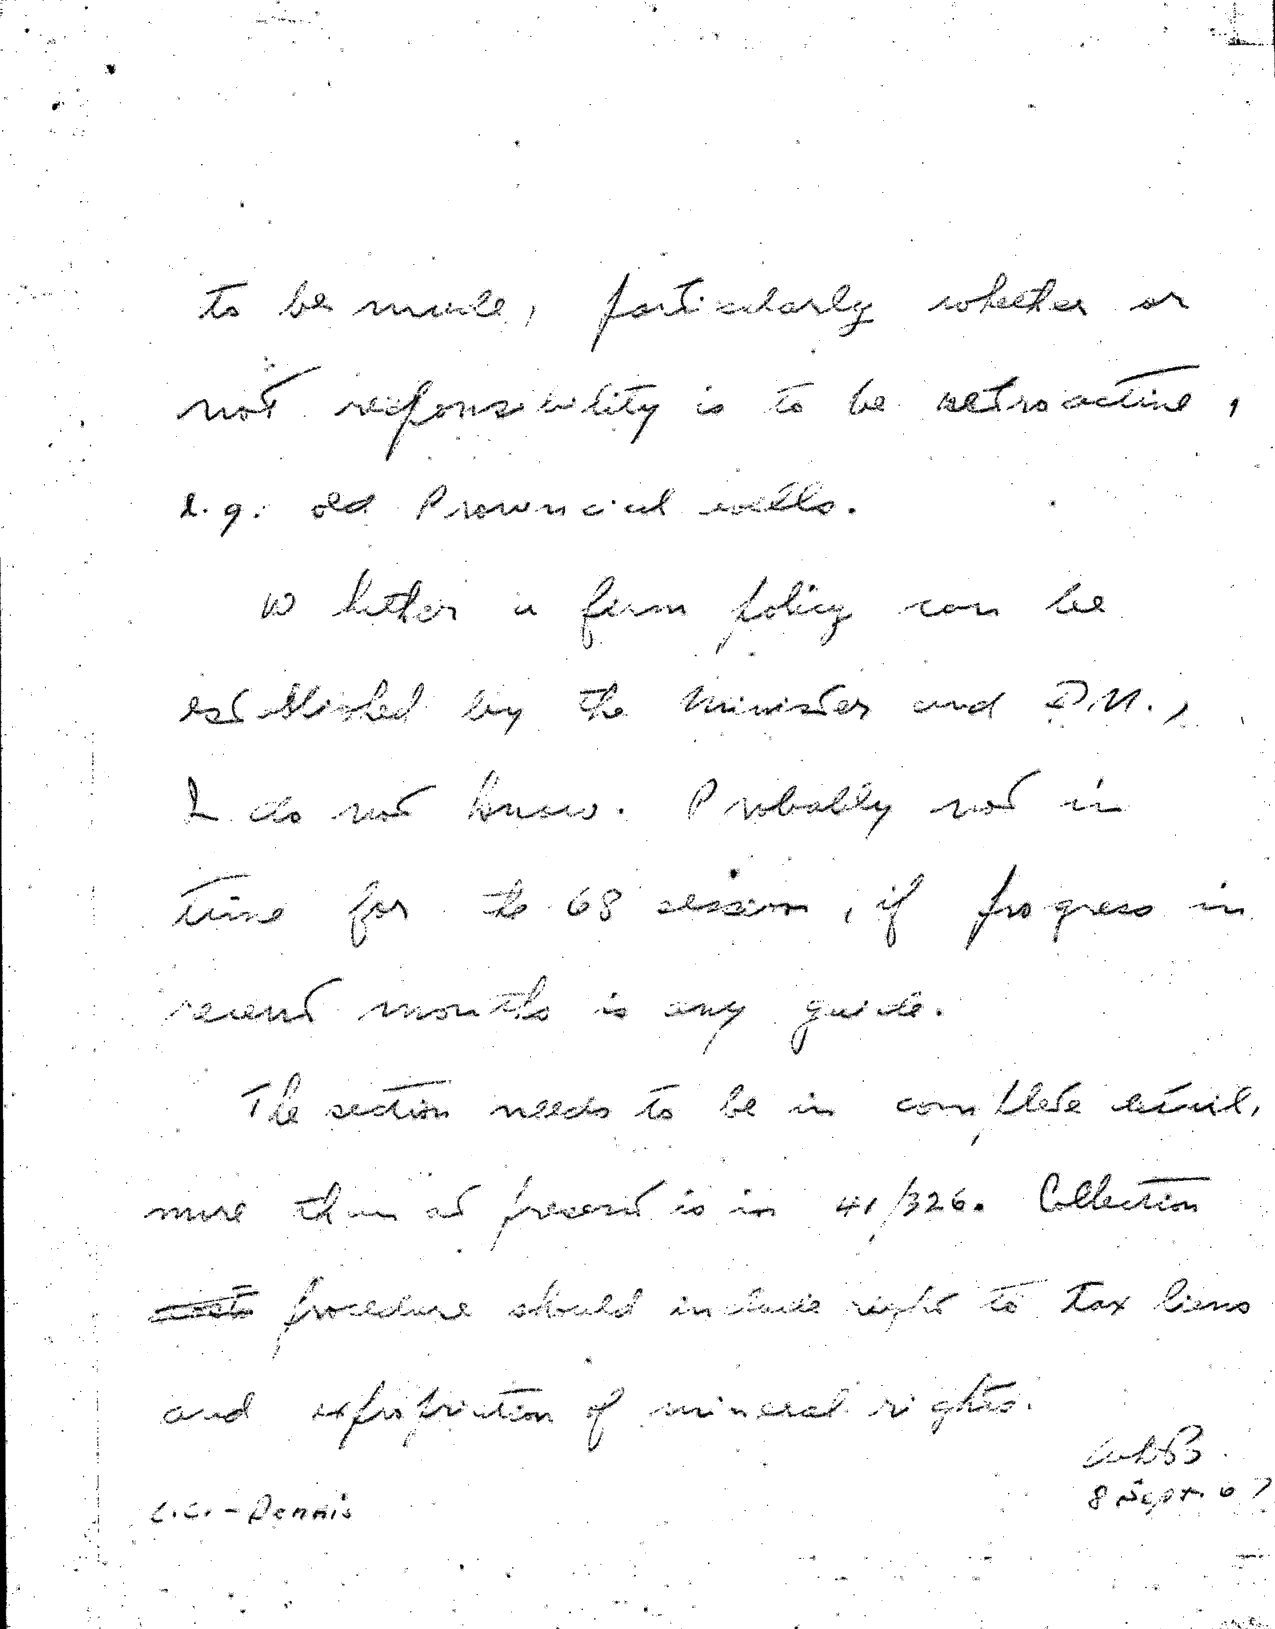 to be made, particularly whether or
not responsibility is to be retroactive,
e.g. old Provincial wells.
Whether a firm policy can be
established by the Minister and D.M.,
I do not know. Probably not in
time for the 68 session, if progress in
recent months is any guide.
The section needs to be in complete detail,
more than at present is in 41/326. Collection
procedure should include right to tax liens
and expropriation of mineral rights.
8 Sept. 67
c.c. - Dennis